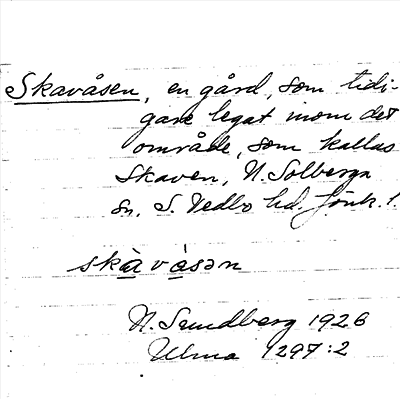 Skavåsen, en gård, som tidi-
gare legat inom det
område, som kallas
Skaven, N. Solberga
sn. S. Vedbo hd. Jönk. l.
skàvàsən
N. Sundberg 1926
Ulma 1297:2